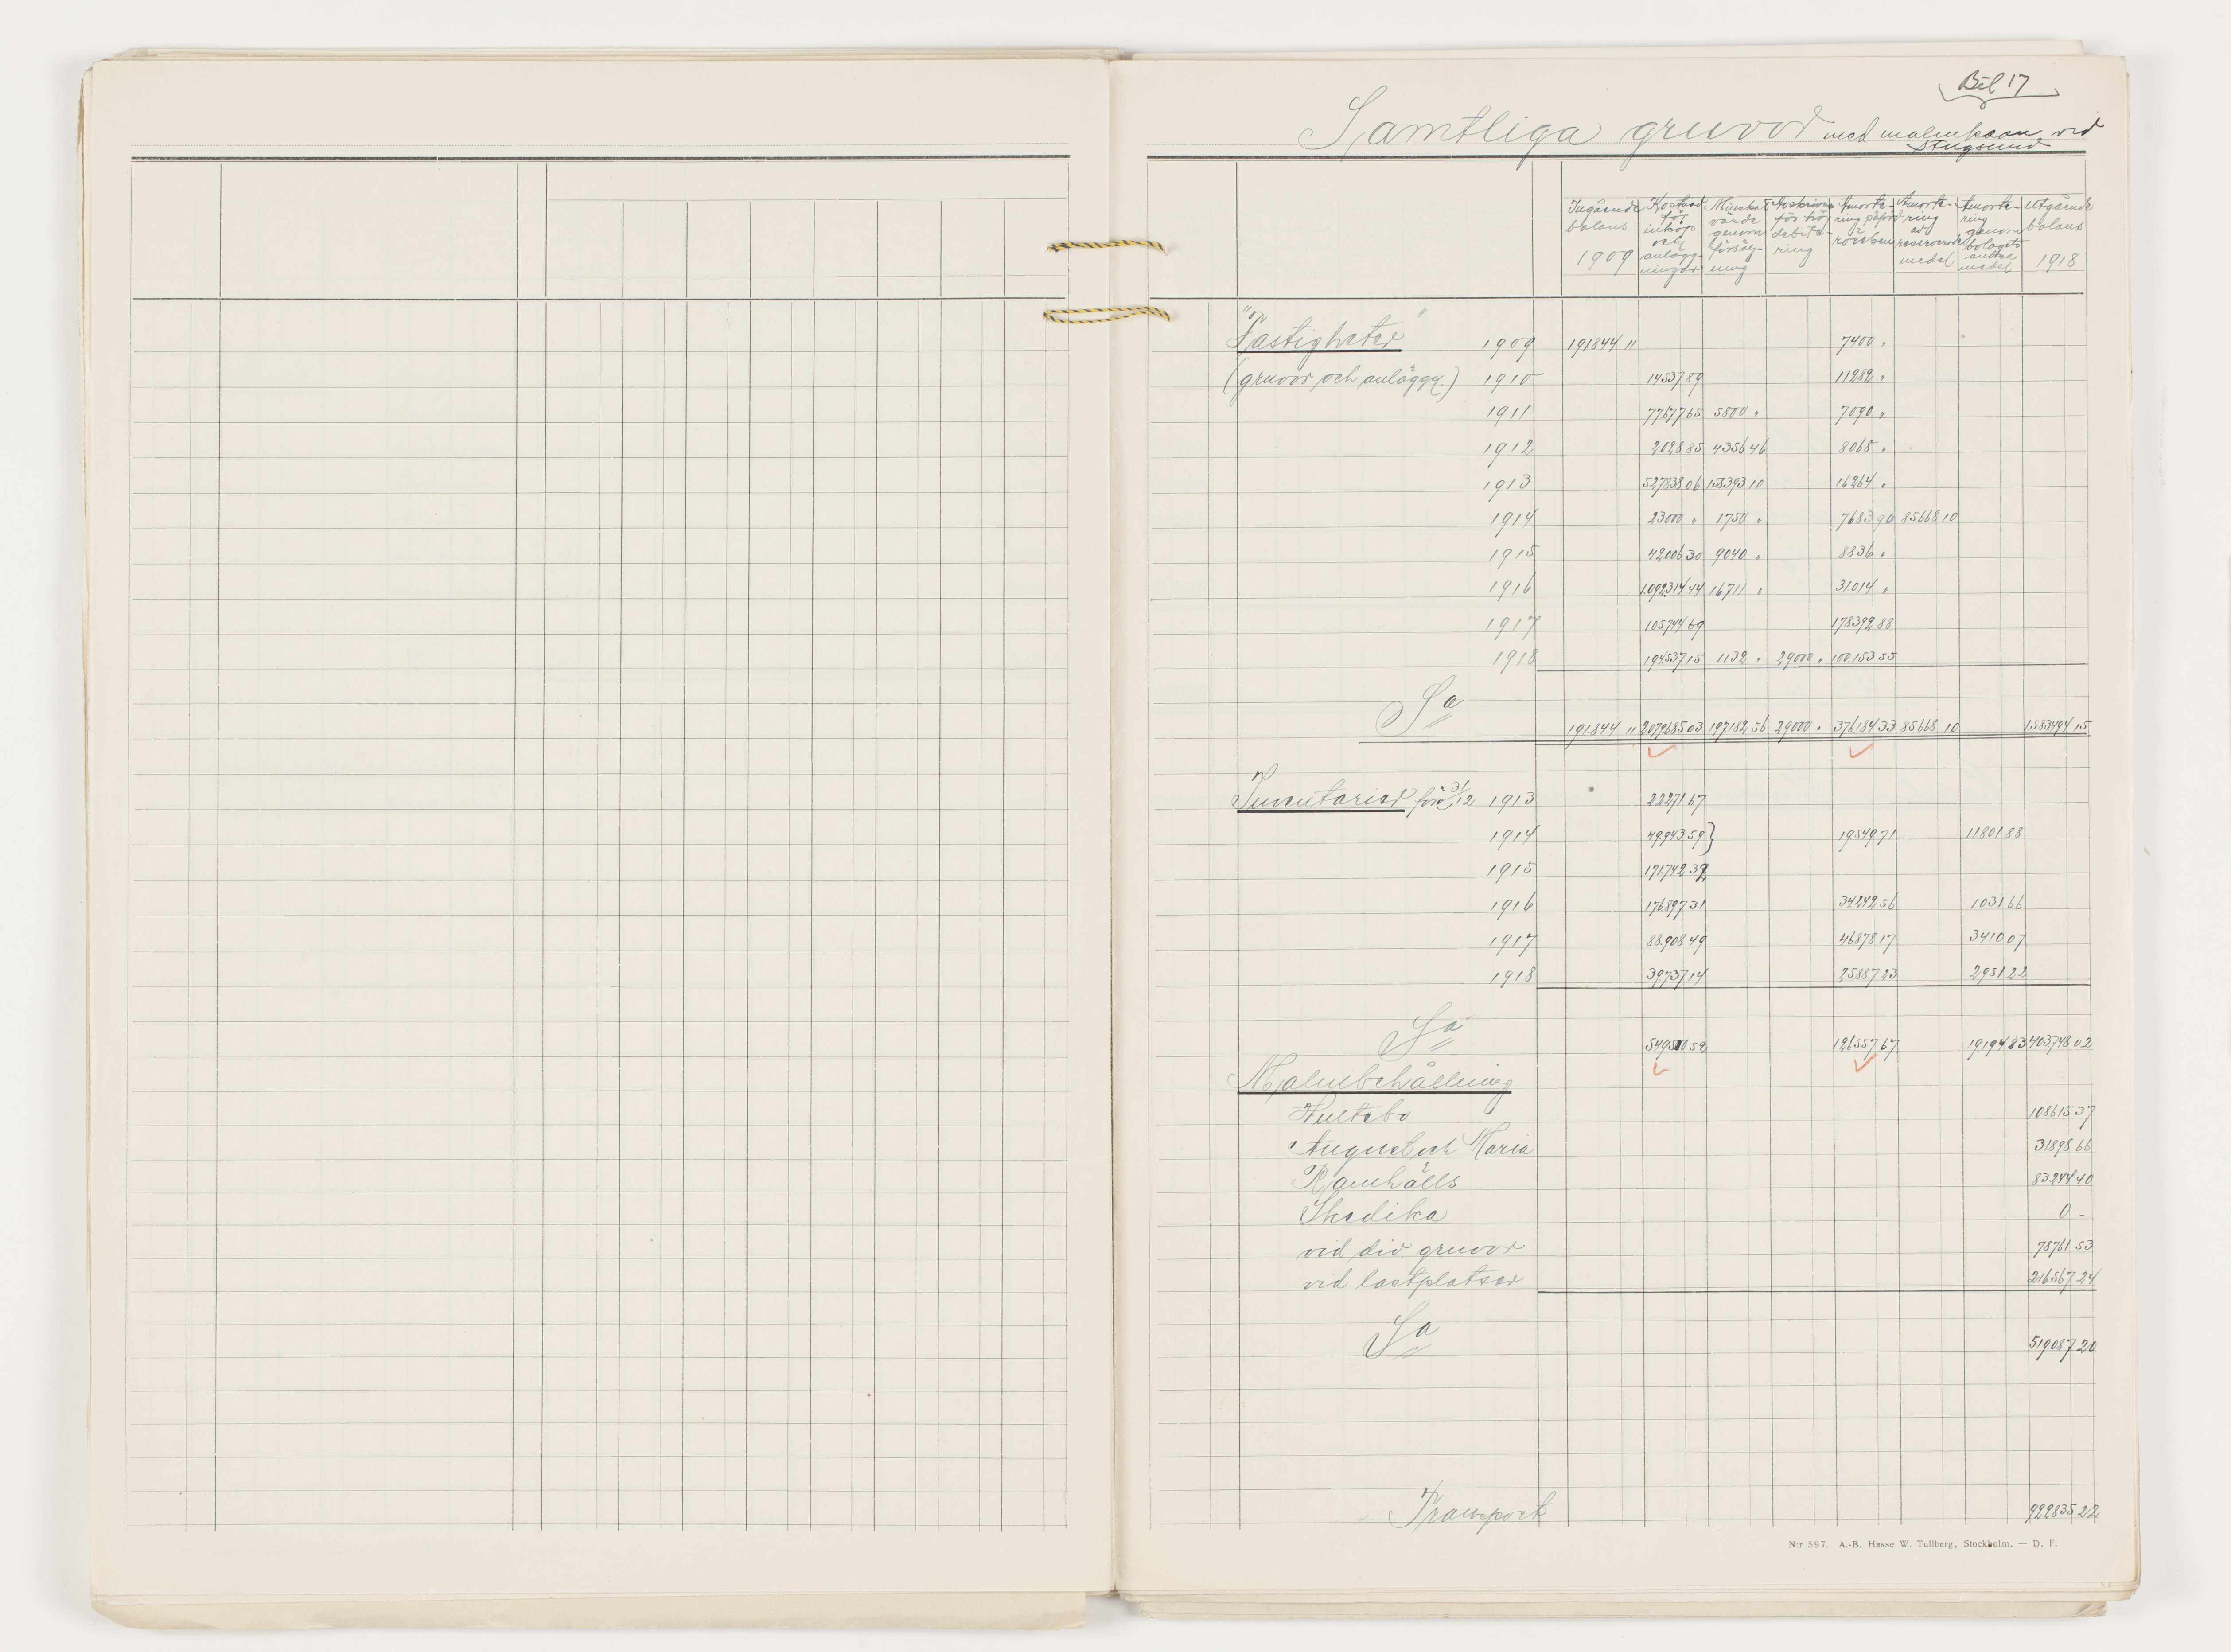 Bil 17
Samtliga gruvor med malmkaan vid
Stugsund
Ingående balans 1909
Kostnad för inköp och anläggningar
Minskat värde genom försäljning
Avskrivn. för hög debitering
Amortering påförd rörelsen
Amortering av reserverade medel
Amortering genom bolagets andra medel
Utgående balans 1918
"Fastigheter" 1909 191844 11 7400 "
(gruvor och anläggn.) 1910 14537 89 11282 "
1911 77677 65 5800 " 7090 "
1912 2028 85 4356 46 8068 "
1913 527838 06 158393 10 16264 "
1914 23000 " 1750 " 7683 90 85668 10
1915 42006 30 9040 " 8836 "
1916 1092314 44 16711 " 31014 "
1917 105744 69 178392 88
1918 194537 15 1132 " 29000 " 100153 55
Sa 191844 11 2079685 03 197182 56 29000 " 376184 33 85668 10 1583494 15
Inventarier före 31/12 1913 22271 67
1914 49943 59 19549 71 11801 88
1915 171742 39
1916 176897 31 34242 56 1031 66
1917 88908 49 46878 17 3410 07
1918 39737 14 25887 23 2951 22
Sa 549500 59 126557 67 19194 83 403748 02
Malmbehållning
Hultebo 108615 37
August och Maria 31898 66
Ramhälls 83244 40
Skedika 0 -
vid div. gruvor 78761 53
vid lastplatser 216567 24
Sa 519087 20
Transport 922835 22
N:r 597. A.-B. Hasse W. Tullberg, Stockholm. — D. F.